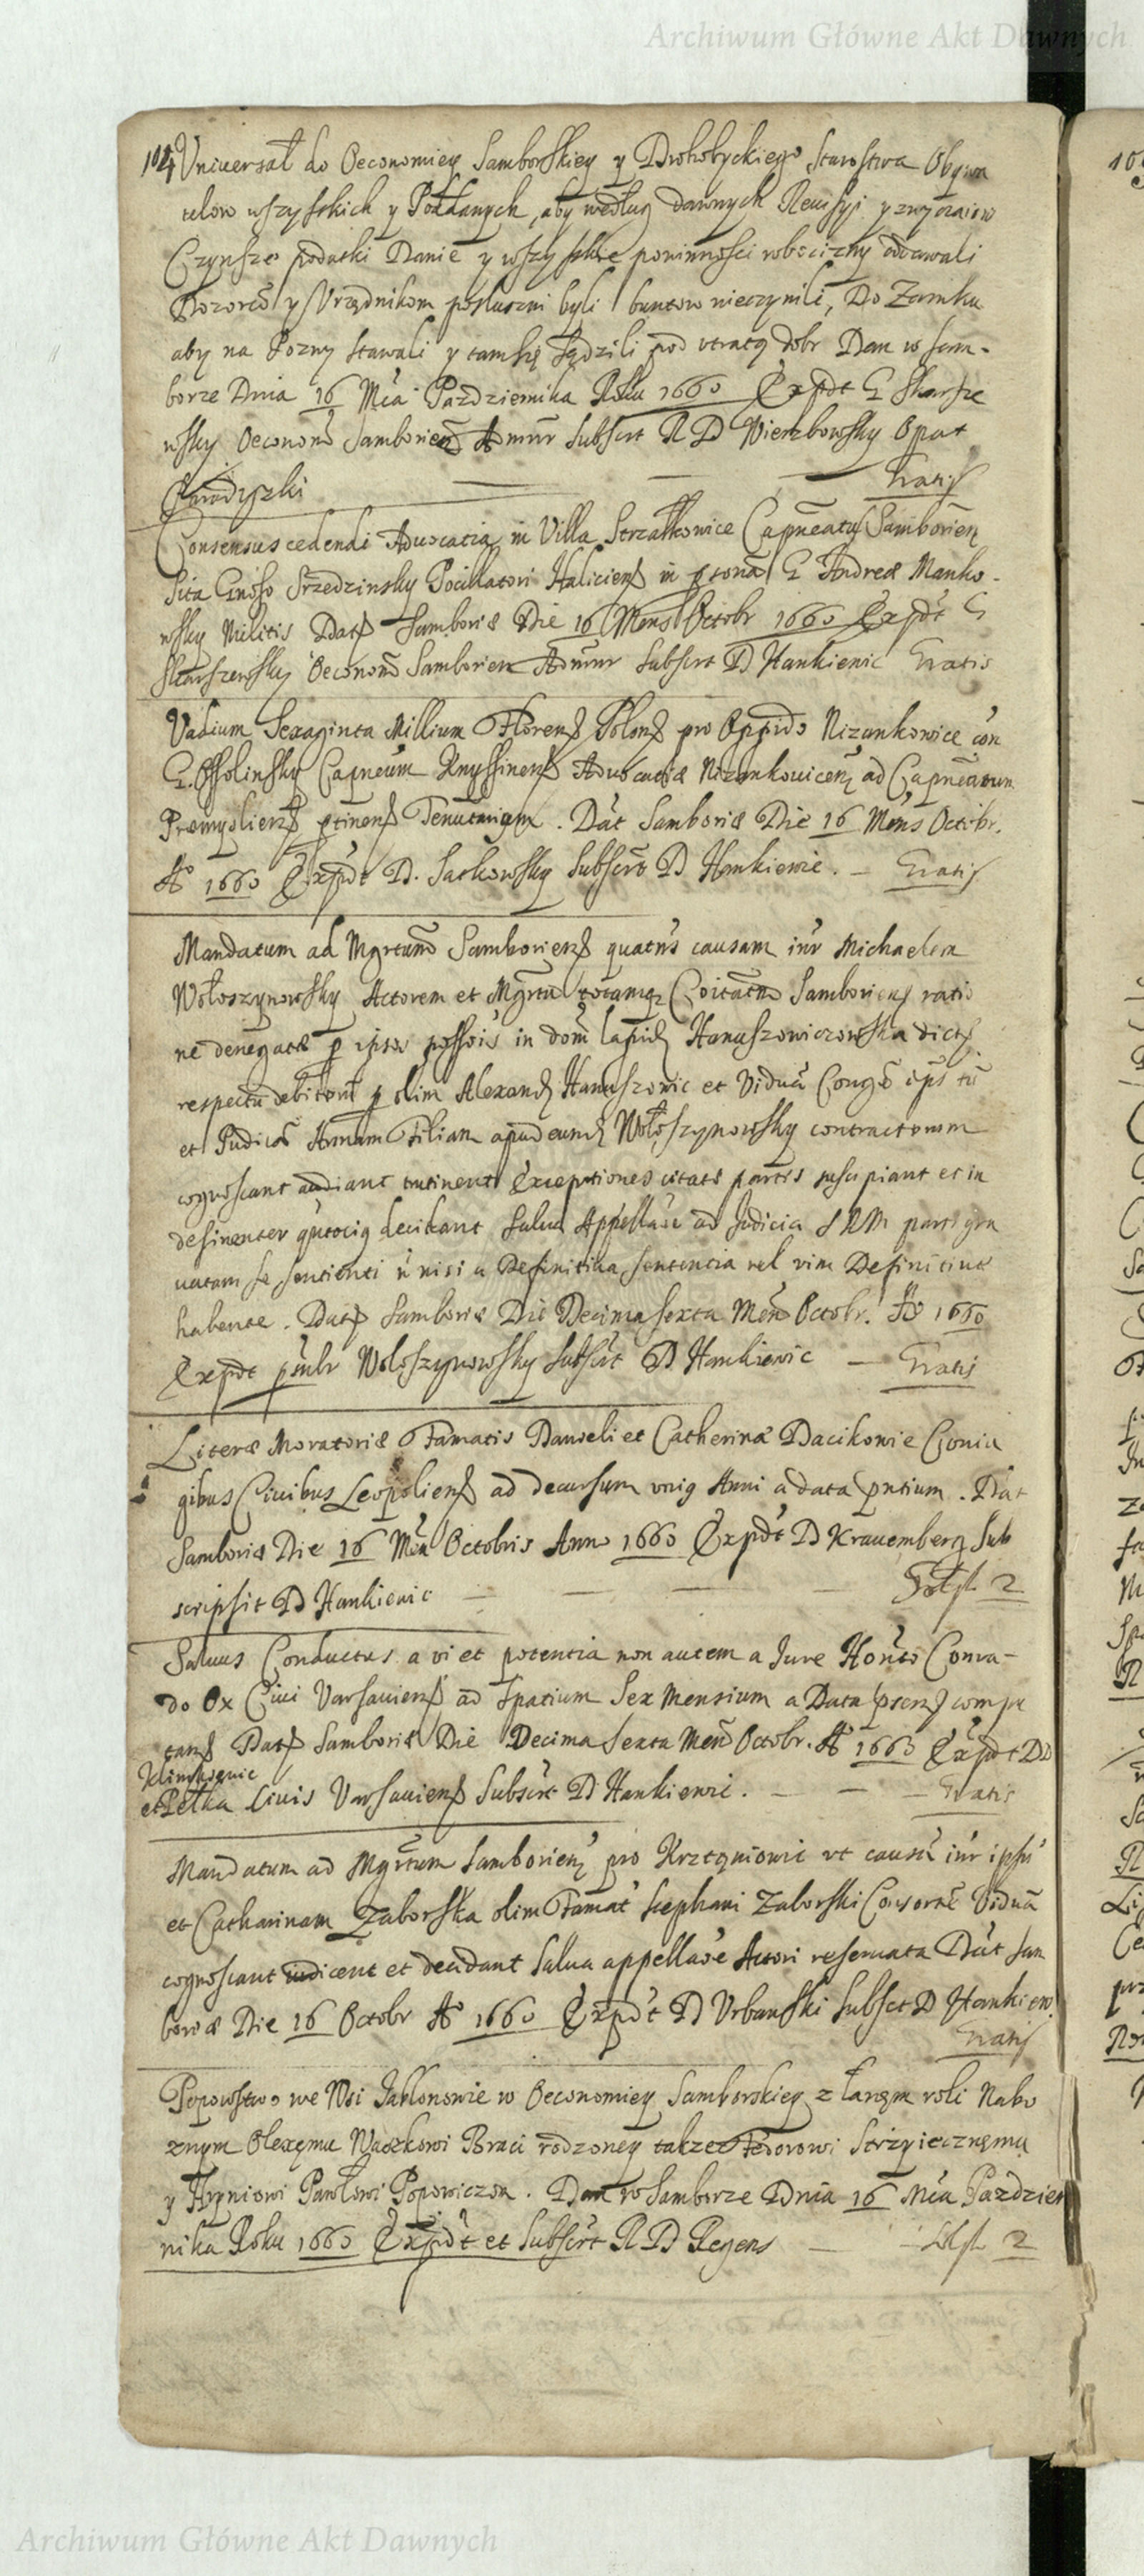 Archiwum Główne Akt Dawnych
104 Vniuersał do Oeconomiey Samborskiey y Drohobyckiego Starostwa Obywa
telow wszystkich y Poddanych, aby według dawnych Rewisyi y zwyczaiow
Czynsze podatki Danie y wszystkie powinnosci robocizny oddawali
Dozorcō y Vrzędnikom posłuszni byli buntow nieczynili, Do Zamku
aby na Pozwy stawali y tam się sądzili pod vtratą dobr Dan w Sam-
borze Dnia 16 Mca Pazdziernika Roku 1660 Expdt G Skarsze
wsky Oeconomō Samborien Admnr Subscrt R D Wierzbowsky Opat
Gratis
Consensus cedendi Aduocatia in Villa Strzałkowice Capneatus Samborien
sita Gnoso Srzedzinsky Pocillatori Haliciens in psonā G Andreæ Manko-
wsky Militis Dats Samboriæ Die 16 Mens Octobr 1660 Expdt G
Skarszewsky Oeconomō Samborien Admnr Subscrt D Hankiewic Gratis
Vadium Sexaginta Millium Florens Polons pro Oppido Nizankowice con
G. Ossolinsky Capneum Knyssinens Aduocatiæ Nizankouicens ad Capneatum
Præmysliens ptinens Tenutarium. Dat Samboriæ Die 16 Mens Octobr.
Aō 1660 Expdt D. Sarkowsky Subscrt D Hankiewic. — Gratis
Mandatum ad Mgrtum Samboriens quatns causam intr Michaelem
Wołoszynowsky Actorem et Mgrtū totamq Coitatem Samboriens ratio
ne denegatæ p ipsos possois in domō lapid Hanuszowiczowska dicts
respectu debitorū p olim Alexand Hanuszowic et Viduā Congē ips tū
et Pudicā Annam Filiam apud eund Wołoszynowsky contractorum
cognoscant audiant trutinent Exceptiones citatæ partis suscipiant et in
definenter decidant Salua Appellaōe ad Judicia S R M parti gra
uatam se sentienti ñ nisi a Definitiua sententia vel vim Definitiuæ
habente. Dats Samboriæ Die Decima Sexta Mens Octobr. Aō 1660
Expdt Wołoszynowsky Subscrt D Hankiewic — Gratis
Literæ Moratoriæ Famatis Danieli et Catherinæ Dacikowic Coniu
gibus Ciuibus Leopoliens ad decursum vnig Anni a data pntium. Dat
Samboriæ Die 16 Mēn Octobris Anno 1660 Expdt D Krauemberg Sub
scripsit D Hankiewic — — — 2
Saluus Conductus a vi et potentia non autem a Jure Honto Conra-
do Ox Ciui Varsauiens ad Spatium Sex Mensium a Data psens compu
tans Dats Samboriæ Die Decima Sexta Mens Octobr. Aō 1660 Expdt DD
Klimkiewic
et Petka Ciuis Varsauiens Subscrt D Hankiewic. — — — Gratis
Mandatum ad Mgrtum Samboriens pro Krztoniowic vt causā intr ipsū
et Catharinam Zaborska olim Famat Stephani Zaborski Consortē Viduā
cognoscant iudicent et decidant Salua appellaōe Actori reseruata Dat Sam
boriæ Die 16 Octobr Aō 1660 Expdt D Vrbanski Subsct D Hankiew
Gratis
Popowstwo we Wsi Jabłonowie w Oeconomiey Samborskiey z łanem roli Nabo
znym Olexemu Waszkowi Braci rodzoney takze Fedorowi Strzyiecznemu
y Hryniowi Pawłowi Popowiczom. Dan w Samborze Dnia 16 Mca Pazdzier
nika Roku 1660 Expdt et Subscrt R D Regens — 2
Archiwum Główne Akt Dawnych